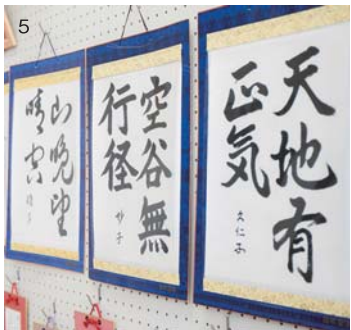 5
天地有
正気
久仁子
空谷無
行径
妙子
山晩望
晴空